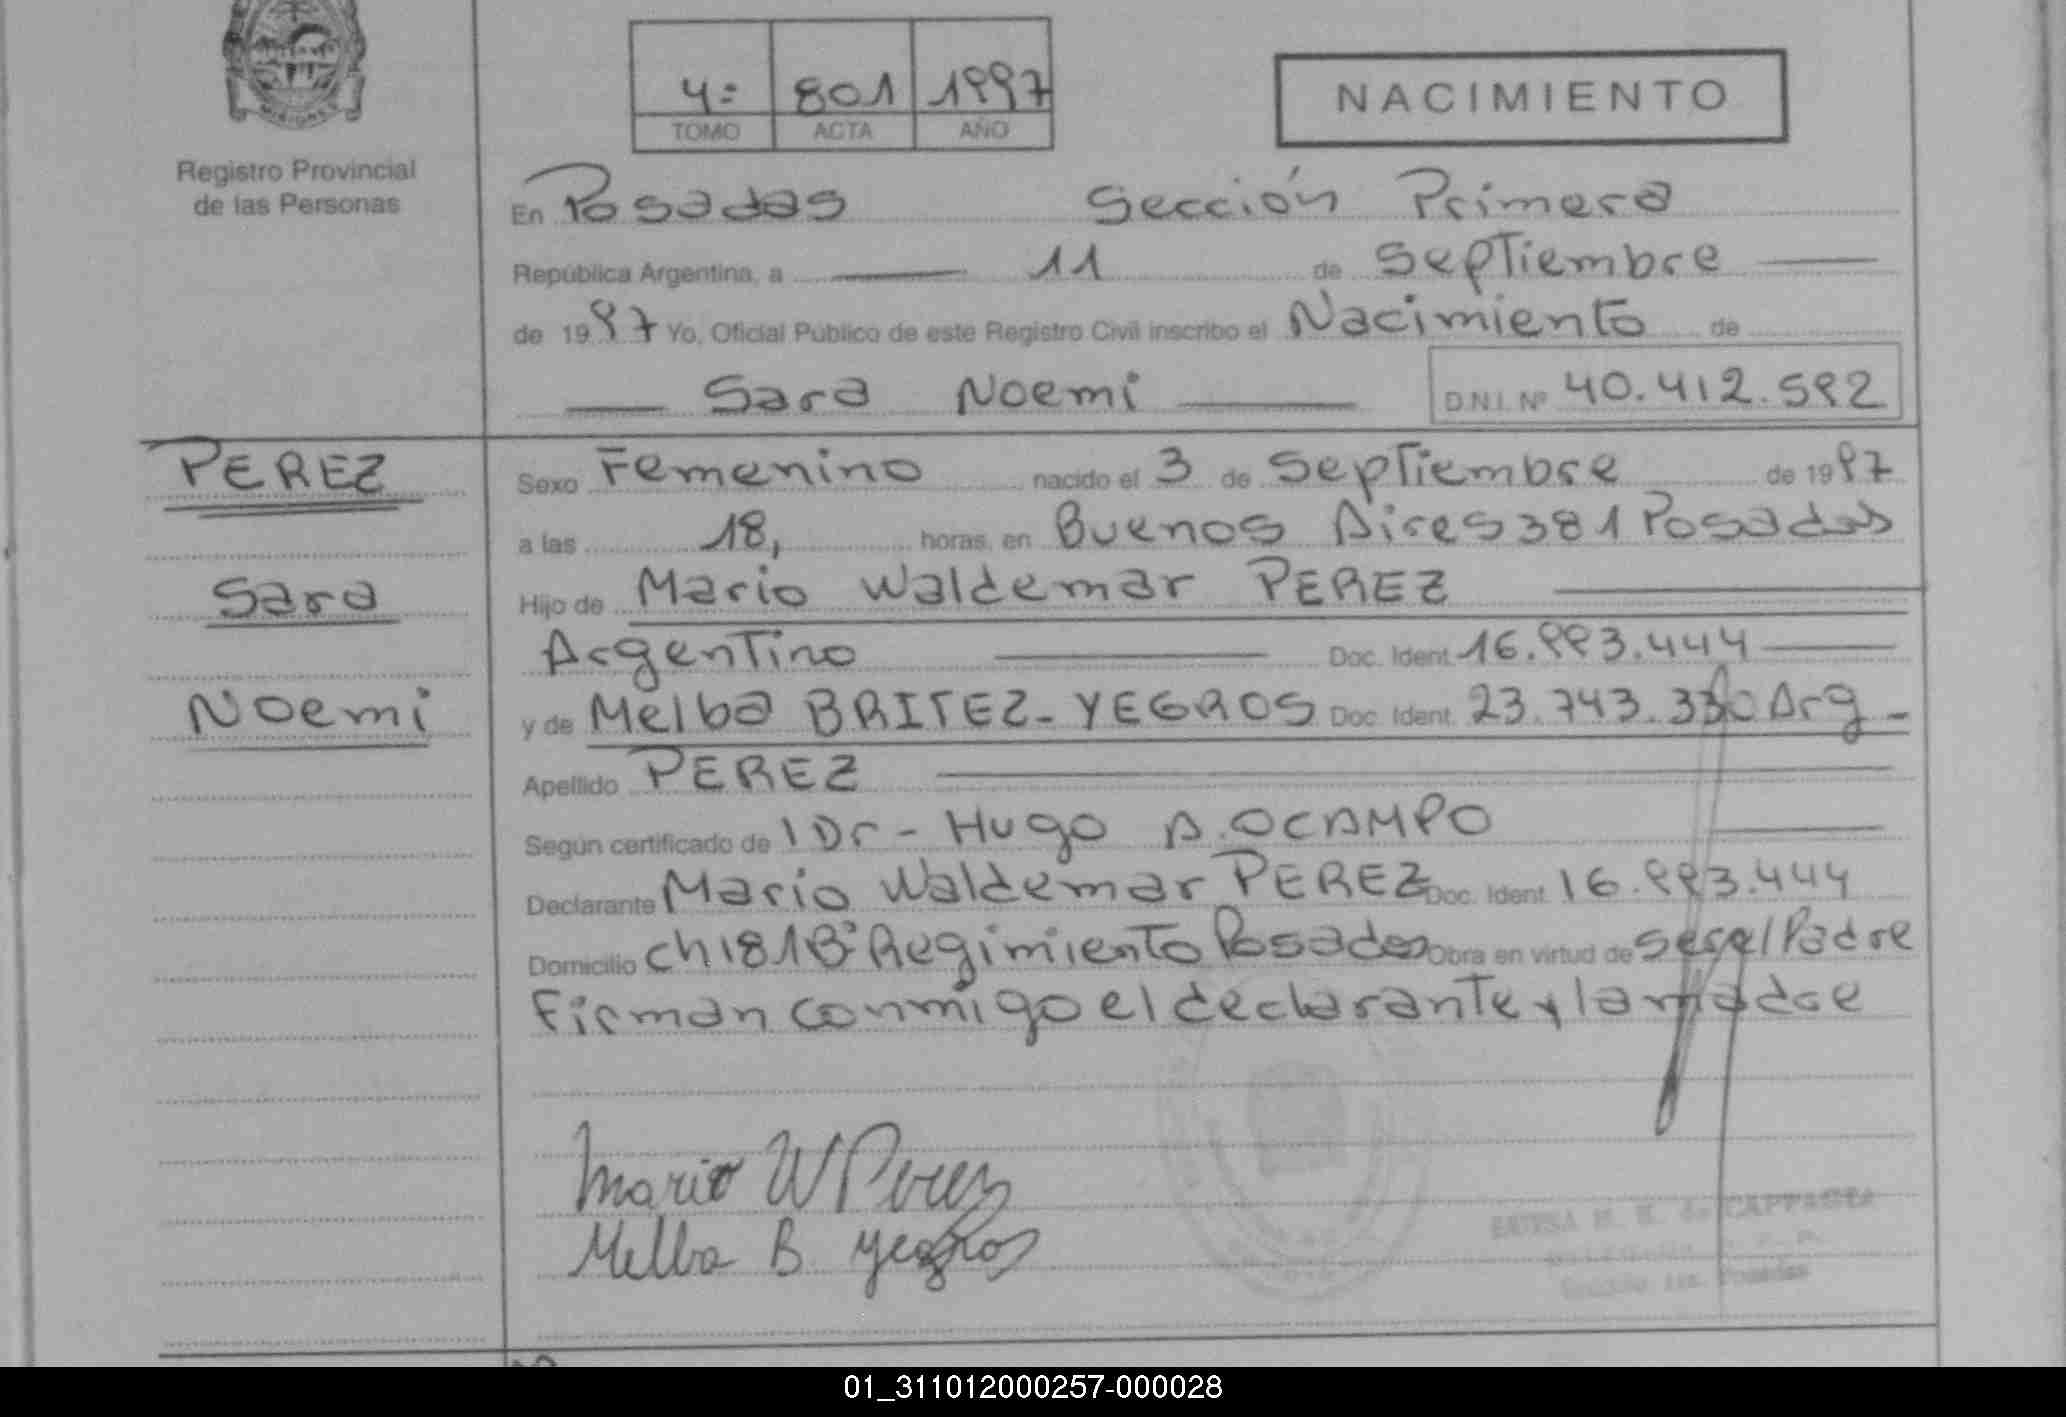 MISIONES
Registro Provincial
de las Personas
4= 801 1997
TOMO ACTA AÑO
NACIMIENTO
En Posadas Sección Primera
República Argentina, a 11 de Septiembre
de 1997 Yo, Oficial Público de este Registro Civil inscribo el Nacimiento de
Sara Noemi D.N.I. Nº 40.412.592
PEREZ
Sara
Noemi
Sexo Femenino nacido el 3 de Septiembre de 1997
a las 18, horas, en Buenos Aires 381 Posadas
Hijo de Mario Waldemar PEREZ
Argentino Doc. Ident. 16.993.444
y de Melba BRITEZ - YEGROS Doc. Ident. 23.743.330 Arg -
Apellido PEREZ
Según certificado de l Dr - Hugo A. OCAMPO
Declarante Mario Waldemar PEREZ Doc. Ident. 16.993.444
Domicilio ch 181 Bº Regimiento Posadas Obra en virtud de ser el Padre
Firman conmigo el declarante y la madre
Mario W Perez
Melba B. Yegros
01_311012000257-000028